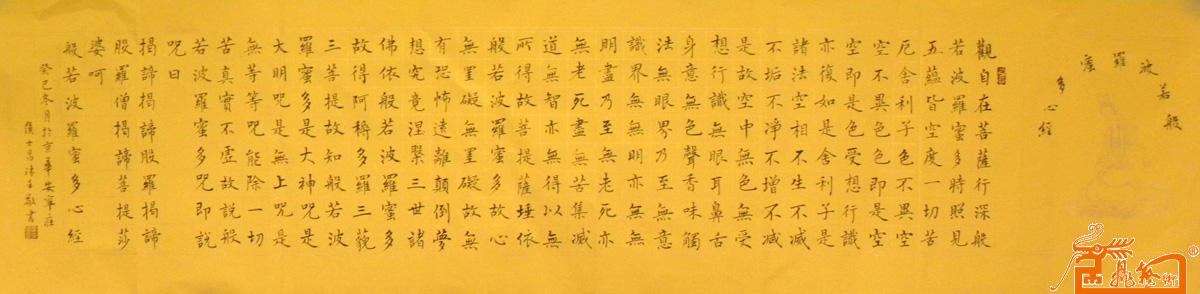 般若波羅蜜多心經
觀自在菩薩行深般
若波羅蜜多時照見
五蘊皆空度一切苦
厄舍利子色不異空
空不異色色即是空
空即是色受想行識
亦復如是舍利子是
諸法空相不生不滅
不垢不淨不增不減
是故空中無色無受
想行識無眼耳鼻舌
身意無色聲香味觸
法無眼界乃至無意
識界無無明亦無無
明盡乃至無老死亦
無老死盡無苦集滅
道無智亦無得以無
所得故菩提薩埵依
般若波羅蜜多故心
無罣礙無罣礙故無
有恐怖遠離顛倒夢
想究竟涅槃三世諸
佛依般若波羅蜜多
故得阿耨多羅三藐
三菩提故知般若波
羅蜜多是大神咒是
大明咒是無上咒是
無等等咒能除一切
苦真實不虛故說般
若波羅蜜多咒即說
咒曰
揭諦揭諦般羅揭諦
般羅僧揭諦菩提莎
婆呵
般若波羅蜜多心經
癸巳冬月於京華安寧莊
侯士昌沐手敬書